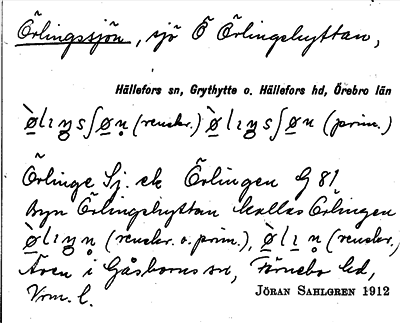 Örlingssjön, sjö Ö Örlingshyttan,
Hällefors sn, Grythytte o. Hällefors hd, Örebro län
ø̀lıŋsʃøn (renskr.) ø̀lıŋsʃøn (prim.)
Örlinge Sj. ek Örlingen G 81
byn Örlingshyttan kallas Örlingen
ø̀lıŋn (renskr. o. prim.), ø̀lın (renskr.)
Även i Gåsborns sn, Färnebo hd,
Vrm. l.
JÖRAN SAHLGREN 1912